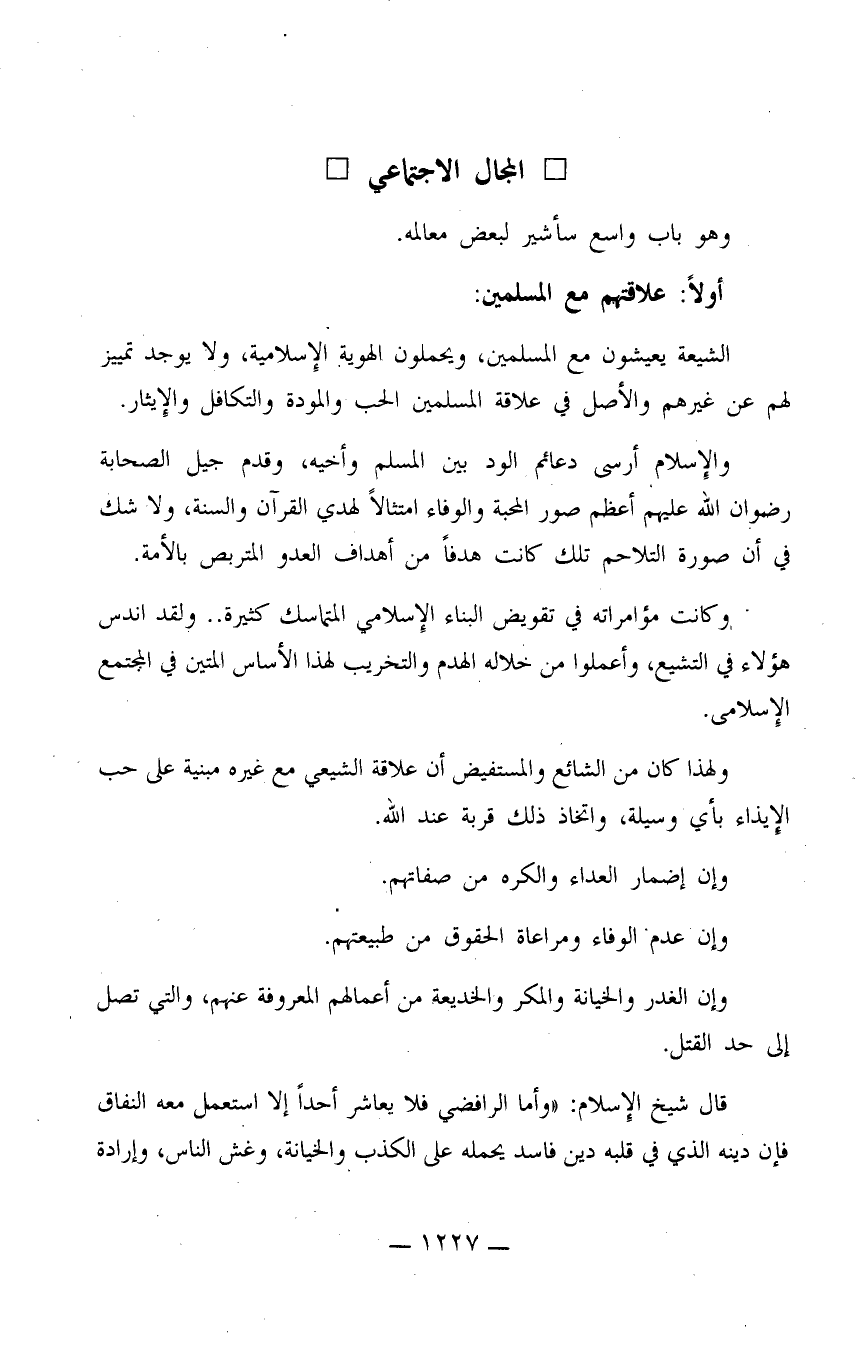 □ المجال الاجتماعي □
وهو باب واسع سأشير لبعض معالمه.
أولاً: علاقتهم مع المسلمين:
الشيعة يعيشون مع المسلمين، ويحملون الهوية الإسلامية، ولا يوجد تمييز
لهم عن غيرهم والأصل في علاقة المسلمين الحب والمودة والتكافل والإيثار.
والإسلام أرسى دعائم الود بين المسلم وأخيه، وقدم جيل الصحابة
رضوان الله عليهم أعظم صور المحبة والوفاء امتثالاً لهدي القرآن والسنة، ولا شك
في أن صورة التلاحم تلك كانت هدفاً من أهداف العدو المتربص بالأمة.
وكانت مؤامراته في تقويض البناء الإسلامي المتماسك كثيرة.. ولقد اندس
هؤلاء في التشيع، وأعملوا من خلاله الهدم والتخريب لهذا الأساس المتين في المجتمع
الإسلامى.
ولهذا كان من الشائع والمستفيض أن علاقة الشيعي مع غيره مبنية على حب
الإيذاء بأي وسيلة، واتخاذ ذلك قربة عند الله.
وإن إضمار العداء والكره من صفاتهم.
وإن عدم الوفاء ومراعاة الحقوق من طبيعتهم.
وإن الغدر والخيانة والمكر والخديعة من أعمالهم المعروفة عنهم، والتي تصل
إلى حد القتل.
قال شيخ الإسلام: «وأما الرافضي فلا يعاشر أحداً إلا استعمل معه النفاق
فإن دينه الذي في قلبه دين فاسد يحمله على الكذب والخيانة، وغش الناس، وإرادة
— ١٢٢٧ —